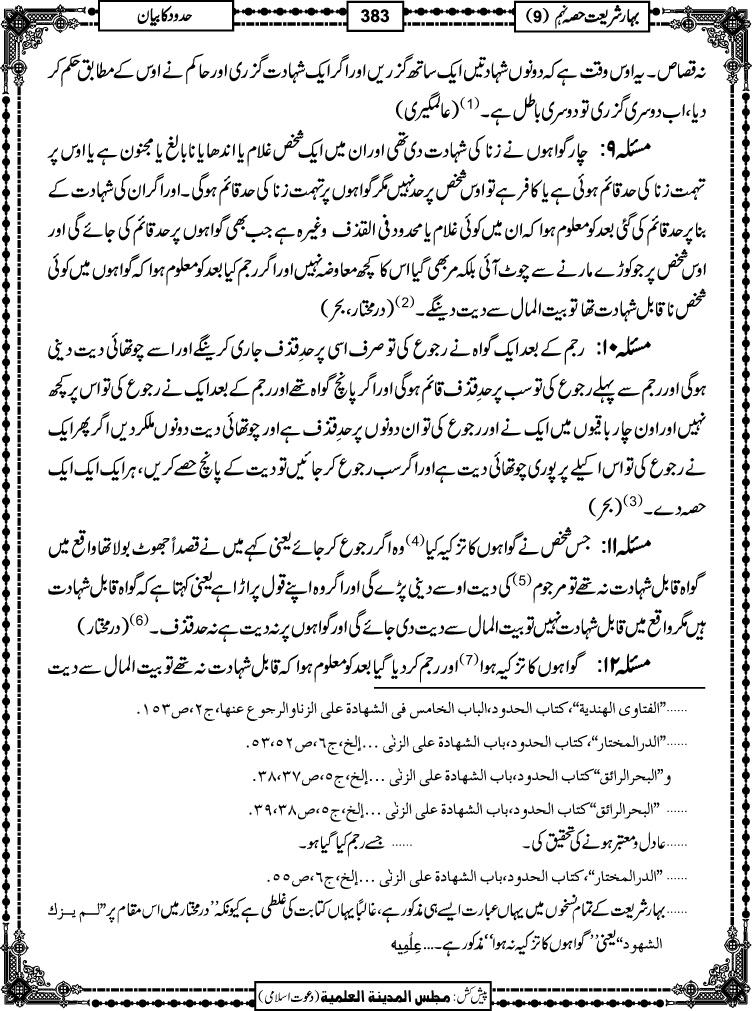 بہارِ شریعت حصہ نہم (9)
383
حدود کا بیان
نہ قصاص۔ یہ اوس وقت ہے کہ دونوں شہادتیں ایک ساتھ گزریں اور اگر ایک شہادت گزری اور حاکم نے اوس کے مطابق حکم کر
دیا، اب دوسری گزری تو دوسری باطل ہے۔(1) (عالمگیری)
مسئلہ ۹: چار گواہوں نے زنا کی شہادت دی تھی اور ان میں ایک شخص غلام یا اندھا یا نابالغ یا مجنون ہے یا اوس پر
تہمت زنا کی حد قائم ہوئی ہے یا کافر ہے تو اوس شخص پر حد نہیں مگر گواہوں پر تہمت زنا کی حد قائم ہوگی۔ اور اگر ان کی شہادت کے
بنا پر حد قائم کی گئی بعد کو معلوم ہوا کہ ان میں کوئی غلام یا محدود فی القذف وغیرہ ہے جب بھی گواہوں پر حد قائم کی جائے گی اور
اوس شخص پر جو کوڑے مارنے سے چوٹ آئی بلکہ مر بھی گیا اس کا کچھ معاوضہ نہیں اور اگر رجم کیا بعد کو معلوم ہوا کہ گواہوں میں کوئی
شخص ناقابل شہادت تھا تو بیت المال سے دیت دینگے۔(2) (درمختار، بحر)
مسئلہ ۱۰: رجم کے بعد ایک گواہ نے رجوع کی تو صرف اسی پر حدِ قذف جاری کرینگے اور اسے چوتھائی دیت دینی
ہوگی اور رجم سے پہلے رجوع کی تو سب پر حدِ قذف قائم ہوگی اور اگر پانچ گواہ تھے اور رجم کے بعد ایک نے رجوع کی تو اس پر کچھ
نہیں اور اون چار باقیوں میں ایک نے اور رجوع کی تو ان دونوں پر حدِ قذف ہے اور چوتھائی دیت دونوں ملکر دیں اگر پھر ایک
نے رجوع کی تو اس اکیلے پر پوری چوتھائی دیت ہے اور اگر سب رجوع کر جائیں تو دیت کے پانچ حصے کریں، ہر ایک ایک ایک
حصہ دے۔(3) (بحر)
مسئلہ ۱۱: جس شخص نے گواہوں کا تزکیہ کیا(4) وہ اگر رجوع کر جائے یعنی کہے میں نے قصداً جھوٹ بولا تھا واقع میں
گواہ قابل شہادت نہ تھے تو مرجوم(5) کی دیت اوسے دینی پڑے گی اور اگر وہ اپنے قول پر اڑا ہے یعنی کہتا ہے کہ گواہ قابل شہادت
ہیں مگر واقع میں قابل شہادت نہیں تو بیت المال سے دیت دی جائے گی اور گواہوں پر نہ دیت ہے نہ حد قذف۔(6) (درمختار)
مسئلہ ۱۲: گواہوں کا تزکیہ ہوا(7) اور رجم کر دیا گیا بعد کو معلوم ہوا کہ قابل شہادت نہ تھے تو بیت المال سے دیت
......"الفتاوی الهندية"، كتاب الحدود، الباب الخامس فی الشهادة علی الزنا والرجوع عنها، ج۲، ص۱۵۳.
......"الدرالمختار"، كتاب الحدود، باب الشهادة علی الزنٰی ...إلخ، ج۶، ص۵۲، ۵۳.
و "البحرالرائق" كتاب الحدود، باب الشهادة علی الزنٰی ...إلخ، ج۵، ص۳۷، ۳۸.
...... "البحرالرائق" كتاب الحدود، باب الشهادة علی الزنٰی ...إلخ، ج۵، ص۳۸، ۳۹.
......عادل و معتبر ہونے کی تحقیق کی۔ ......جسے رجم کیا گیا ہو۔
......"الدرالمختار"، كتاب الحدود، باب الشهادة علی الزنٰی ...إلخ، ج۶، ص۵۵.
......بہارِ شریعت کے تمام نسخوں میں یہاں عبارت ایسے ہی مذکور ہے، غالبًا یہاں کتابت کی غلطی ہے کیونکہ "درمختار میں اس مقام پر "لم یزك
الشهود" یعنی "گواہوں کا تزکیہ نہ ہوا" مذکور ہے۔...عِلْمِیه
پیش کش: مجلس المدينة العلمية (دعوت اسلامی)